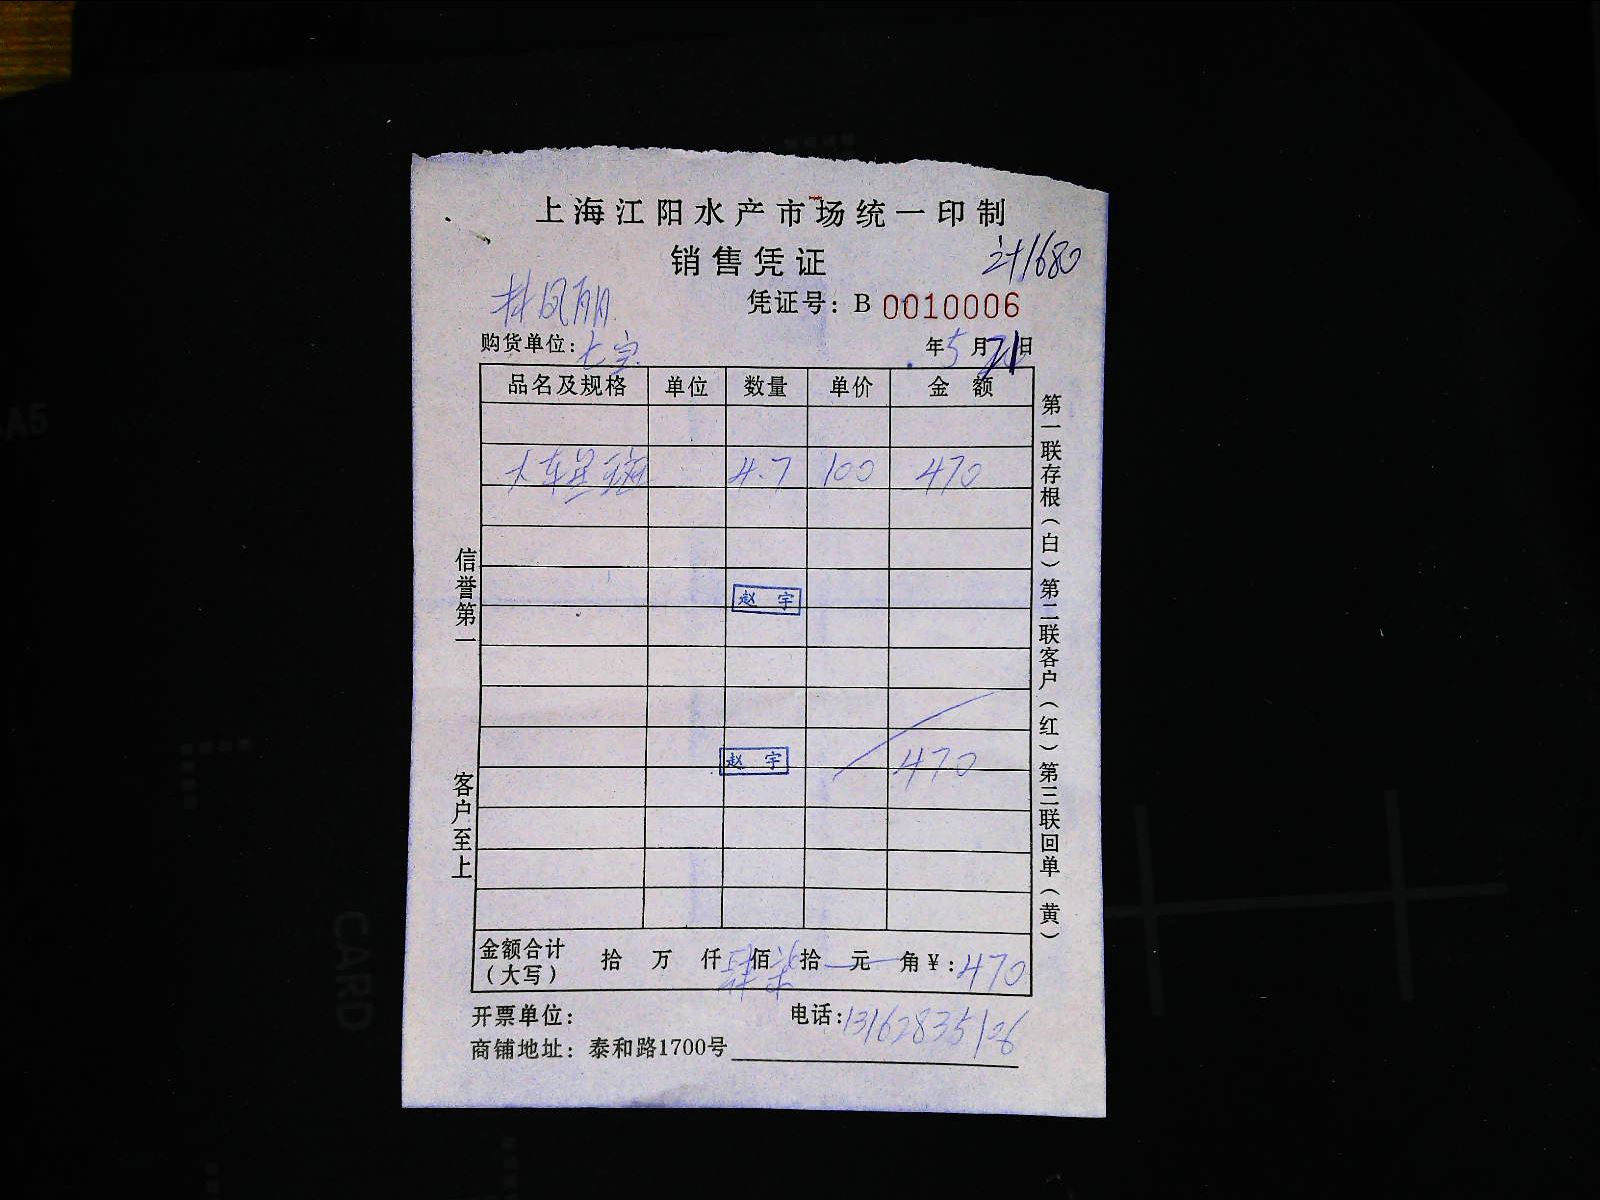 上海江阳水产市场统一印制
销售凭证
计1680
林凤丽
凭证号：B 0010006
购货单位：七宝
年5月21日
品名及规格 单位 数量 单价 金额
4.7 100 470
赵宇
赵宇 470
金额合计（大写） 拾 万 仟肆佰柒拾 元 角￥：470
开票单位：
电话：13162835126
商铺地址：泰和路1700号
信誉第一
客户至上
第一联存根（白）第二联客户（红）第三联回单（黄）
CARD
A5